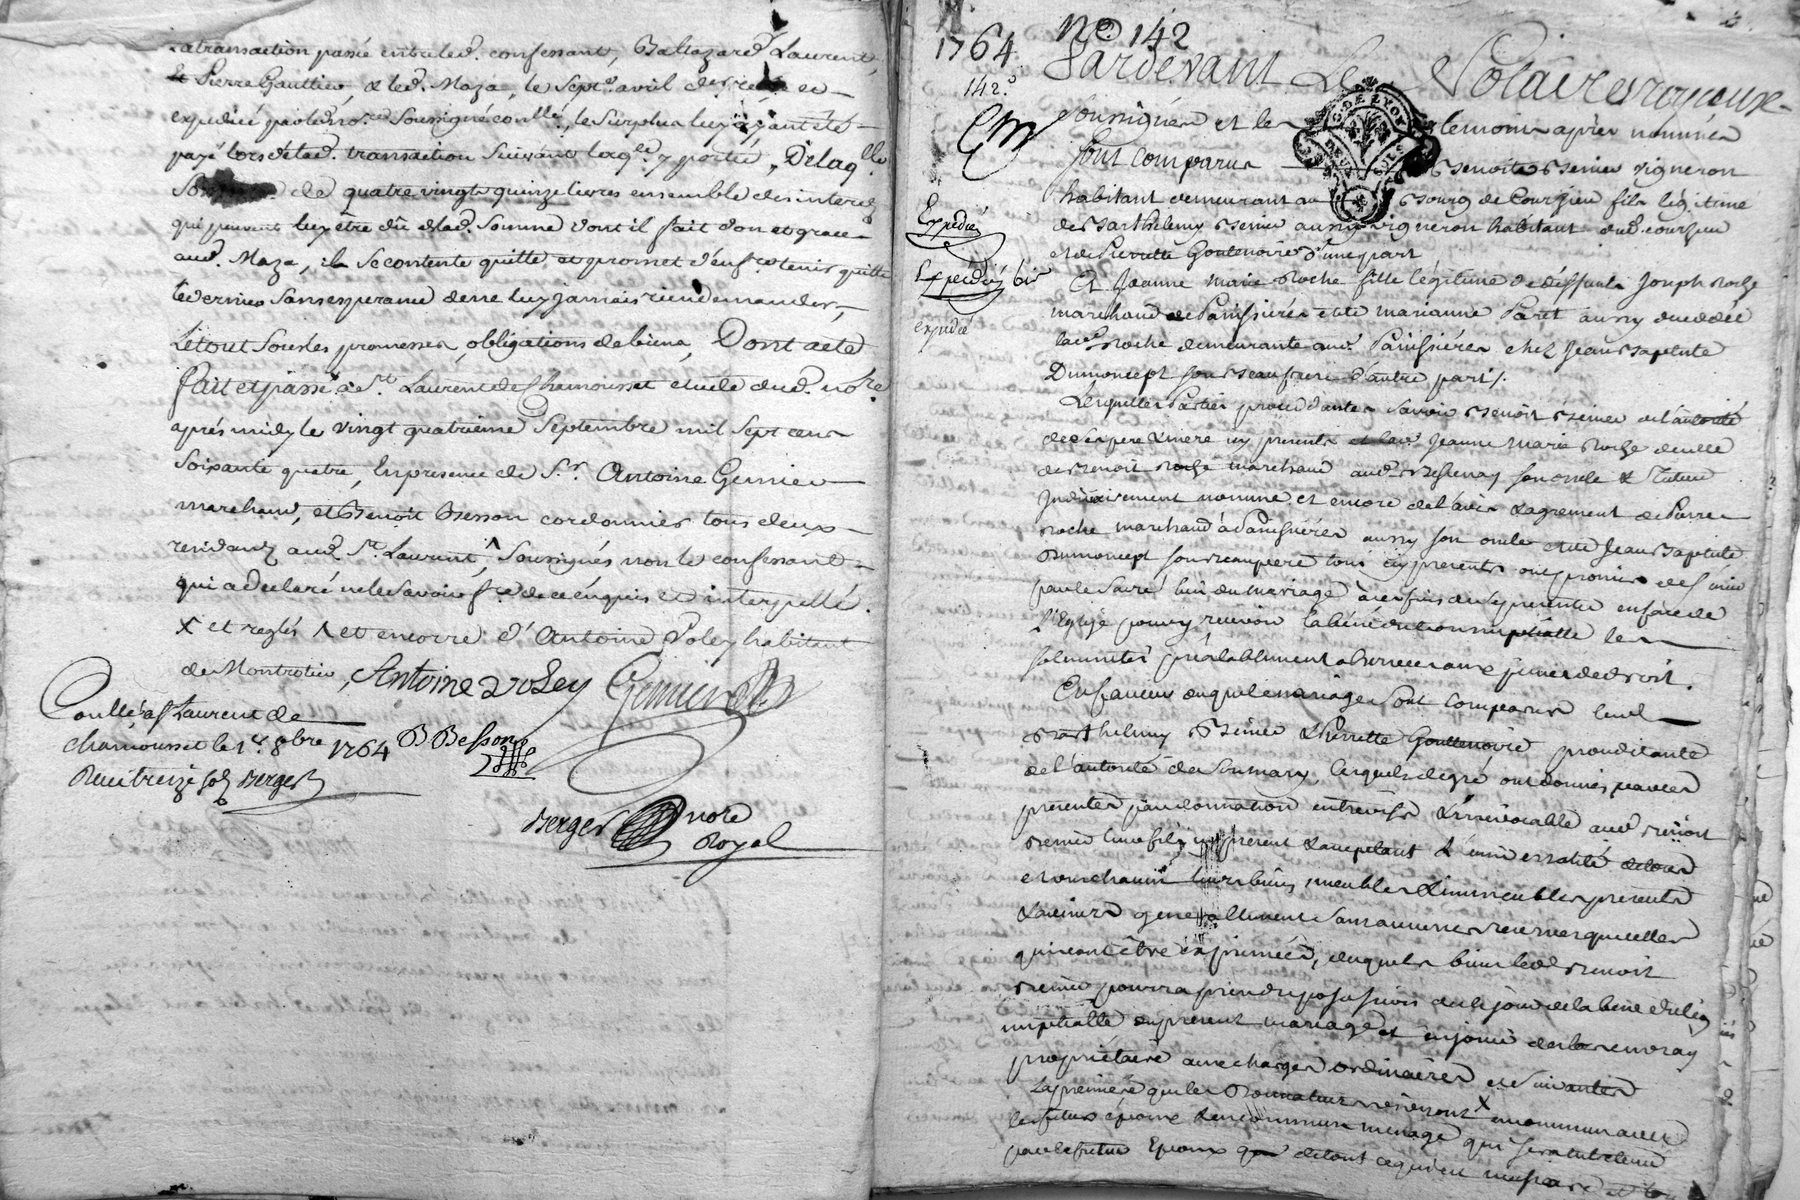 la transaction passée entre led. confessant, Baltazard Laurent,
Et Pierre Gauttier, & led. Maza, le sept avril der
expediée par led. no.re soussigné conllé, le surplus luy ayant été
payé lors de lad. transaction suivant laq.lle y portée, De laq.lle
Somme de quatre vingt quinze livres ensemble des interets
qui peuvent luy être dû de lad. Somme dont il fait don et grace
aud. Maza, il se contente quitte, et promet d'en f.e tenir quitte
le dernier sans esperance de ne luy jamais rien demander,
Le tout sous les promesses, obligations de biens, Dont acte
fait et passé à S.t Laurent de Chamousset etude dud. no.re
après midy le vingt quatrieme Septembre mil Sept cens
Soixante quatre, En presence de S.r Antoine Genier
marchand, et Benoit Besson cordonnier tous deux
residants aud. S.t Laurent, ^ Soussignés non le confessant
qui a declaré ne le savoir f.re de ce enquis et interpellé.
X et reglés ^ et encore d'Antoine Poley habitant
de Montrotier, Antoine Poley Genier
Conllé à S.t Laurent de
Chamousset le 1.er 8bre 1764 B Besson
Reçu treize sols Berger
Berger no.re
Royal
1764 N.o 142
142.e
Pardevant Les Notaires royaux
soussignés et les temoins après nommés
G. DE LYON
Sont comparus Benoit Besnier vigneron
habitant demeurant au Bourg de Courzieu fils légitime
Expedié
de Barthelemy Besnier aussy vigneron habitant dud. Courzieu
et de Pierrette Gontenoire d'une part
Expedié bis
Et Jeanne Marie Roche fille légitime de deffunt Joseph Roche
expedié
marchand de Panissières et de Marianne Paret aussy decedée
lad. Roche demeurante aud. Panissières chez Jean Baptiste
Dumoncept son Beaufrere d'autre part.
Lesquelles Parties procedantes savoir Benoit Besnier de l'autorité
de ses pere & mere icy presents et lad. Jeanne Marie Roche de celle
de Benoit Roche marchand aud. son oncle & Tuteur
Judiciairement nommé et encore de l'avis & agrement de Pierre
Roche marchand à Panissières aussy son oncle et de Jean Baptiste
Dumoncept son beaufrere tous icy presents ont promis de s'unir
par le Sacré lien du mariage à ces fins de se presenter en face de
l'Eglise pour y recevoir la bénédiction nuptialle les
solemnités préalablement observées aux peines de droit.
En faveur duquel mariage sont comparus lesd.
Barthelemy Besnier & Pierrette Gontenoire procedante
de l'autorité de son mary, lesquels de gré ont donné par ces
presentes par donnation entrevifs & irrévocable aud. Benoit
Besnier leur fils icy present & acceptant
chacun leurs biens meubles & immeubles presents
& avenirs generallement sans aucunes reserves que celles
qui vont être exprimées, desquels biens led. Benoit
Besnier pourra prendre possession des le jour de la bene.on
nuptialle du present mariage et en jouir des lors en vray
propriétaire aux charges ordinaires et suivantes
La premiere que les Donnateurs vivront X en commun avec
les futurs epoux dans un commun menage qui sera
par le futur Epoux de tout ce qui est necessaire